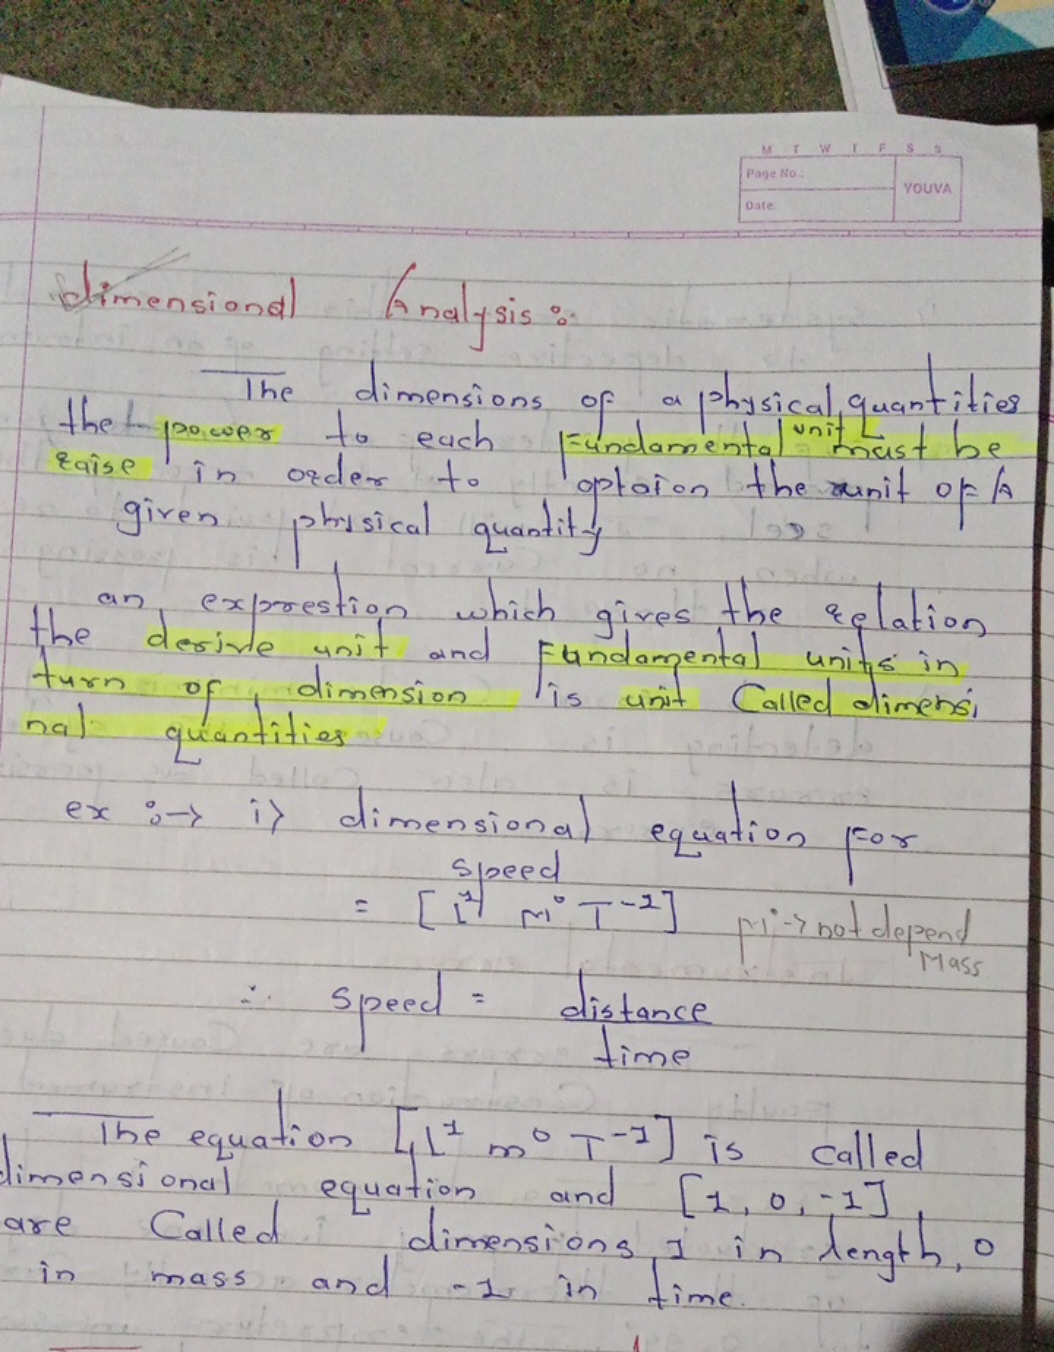 M T W T F S S
Page No.:
YOUVA
Date:
dimensional Analysis :
The dimensions of a physical quantities
the power to each Fundamental unit must be
raise in order to optaion the unit of A
given physical quantity
an exprestion which gives the relation
the desirve unit and Fundamental units in
turn of dimension is unit Called dimensi
nal quantities
ex :→ i> dimensional equation For
speed
= [L¹ M⁰ T⁻¹] M⁰→not depend
Mass
∴ speed = distance
time
The equation [L¹ m⁰ T⁻¹] is called
dimensional equation and [1, 0, -1]
are Called dimensions 1 in length, 0
in mass and -1 in time.